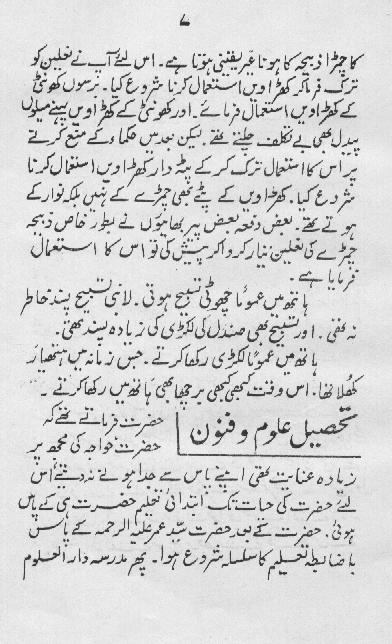 ۷
کا چمڑا ذبیحہ کا ہونا غیر یقینی ہوتا ہے۔ اس لئے آپ نے نعلین کو
ترک فرما کر کھڑاویں استعمال کرنا شروع کیا۔ برسوں کھونٹی
کے کھڑاویں استعمال فرمائے۔ اور کھونٹی کے کھڑاویں پہنے میلوں
پیدل بھی بے تکلف چلتے تھے۔ لیکن بعد میں حکماء کے منع کرنے
پر اس کا استعمال ترک کر کے پٹہ دار کھڑاویں استعمال کرنا
شروع کیا۔ کھڑاویں کے پٹے بھی چمڑے کے نہیں بلکہ نوار کے
ہوتے تھے۔ بعض دفعہ بعض پیر بھائیوں نے بطور خاص ذبیحہ
چمڑے کی نعلین تیار کروا کر پیش کی تو اس کا استعمال
فرمایا ہے۔
ہاتھ میں عموماً چھوٹی تسبیح ہوتی۔ لانبی تسبیح پسند خاطر
نہ تھی۔ اور تسبیح بھی صندل کی لکڑی کی زیادہ پسند تھی۔
ہاتھ میں عموماً لکڑی رکھا کرتے۔ جس زمانہ میں ہتھیار
کھلا تھا۔ اس وقت کبھی کبھی برچھا بھی ہاتھ میں رکھا کرتے۔
تحصیل علوم و فنون
حضرت فرماتے تھے کہ
حضرت خواجہ کی مجھ پر
زیادہ عنایت تھی اپنے پاس سے جدا ہونے نہ دیتے اس
لئے حضرت کی حیات تک ابتدائی تعلیم حضرت ہی کے پاس
ہوئی۔ حضرت کے بعد حضرت سید عمر علیہ الرحمہ کے پاس
باضابطہ تعلیم کا سلسلہ شروع ہوا۔ پھر مدرسہ دار العلوم